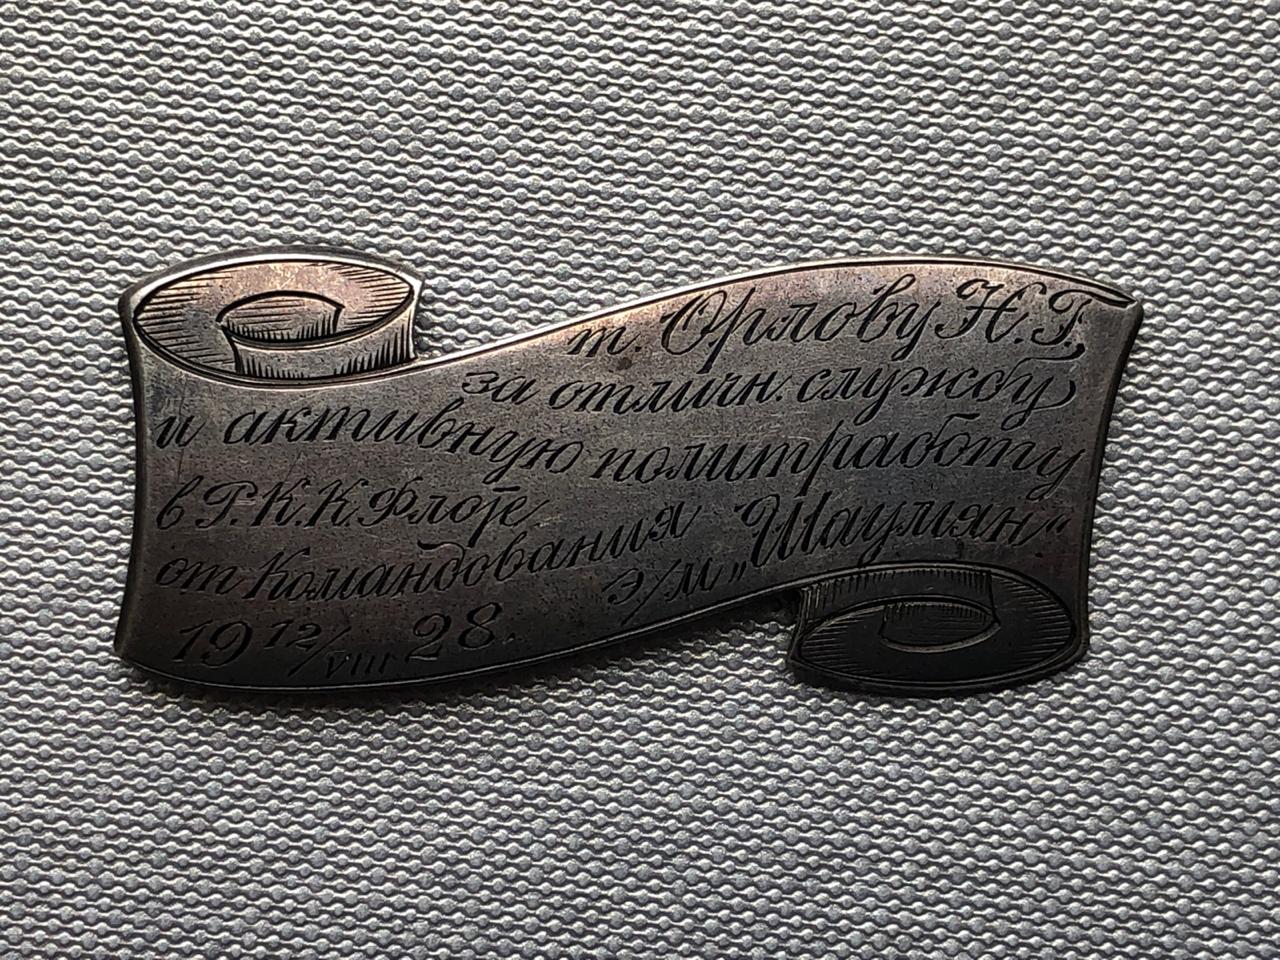 т. Орлову Н.Г.
за отличн. службу
и активную политработу
в Р.К.К. Флоте
от Командования
э/м „Шаумян“
19 12/VIII 28.